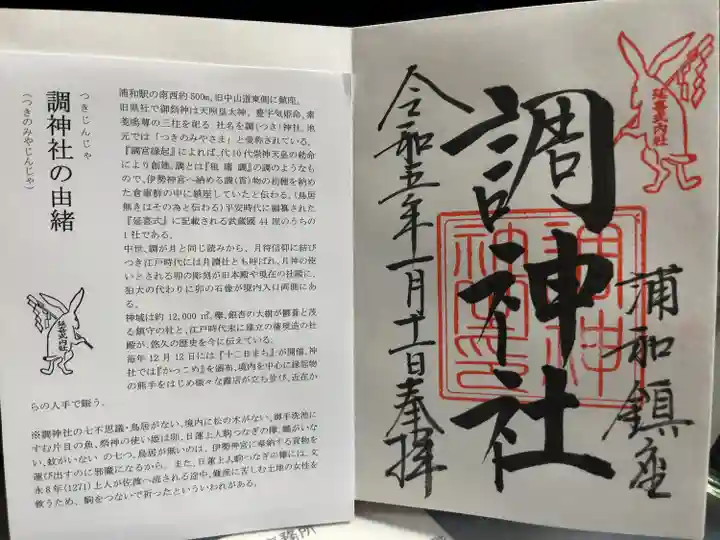 つきじんじゃ
調神社の由緒
(つきのみやじんじゃ)
延喜式内社
浦和駅の南西約500m,旧中山道東側に鎮座。
旧県社で御祭神は天照皇大神、豊宇気姫命、素
戔嗚尊の三柱を祀る。社名を調(つき)神社、地
元では「つきのみやさま」と愛称されている。
『調宮縁起』によれば、代10代崇神天皇の勅命
により創建。調とは『租庸調』の調のようなも
ので、伊勢神宮へ納める調(貢)物の初穂を納め
た倉庫群の中に鎮座していたと伝わる。(鳥居
無きはその為と伝わる)平安時代に編纂された
『延喜式』に記載される武蔵國44座のうちの
1社である。
中世、調が月と同じ読みから、月待信仰に結び
つき江戸時代には月讀社とも呼ばれ、月神の使
いとされる卯の彫刻が旧本殿や現在の社殿に、
狛犬の代わりに卯の石像が境内入口両側にあ
る。
神域は約12,000㎡,欅、銀杏の大樹が鬱蒼と茂
る鎮守の杜と、江戸時代末に建立の権現造の社
殿が、悠久の歴史を今に伝えている。
毎年12月12日には『十二日まち』が開催、神
社では『かっこめ』を頒布、境内を中心に縁起物
の熊手をはじめ様々な露店が立ち並び、近在か
らの人手で賑う。
※調神社の七不思議・鳥居がない、境内に松の木がない、御手洗池に
すむ片目の魚、祭神の使い姫は卯、日蓮上人駒つなぎの欅、蝿がいな
い、蚊がいない の七つ。鳥居が無いのは、伊勢神宮に奉納する貢物を
運び出すのに邪魔になるから。また、日蓮上人駒つなぎの欅には、文
永8年(1271)上人が佐渡へ流される途中、難産に苦しむ土地の女性を
救うため、駒をつないで祈ったといういわれがある。
延喜式内社
浦和鎮座
調神社
令和五年一月十一日奉拝
務所